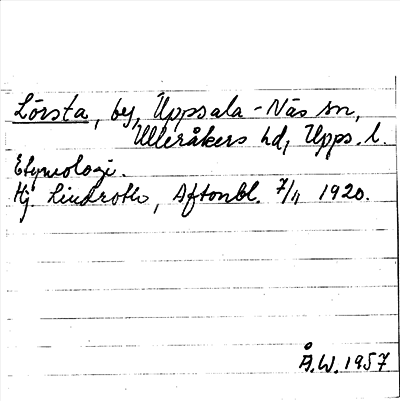 Lörsta, by, Uppsala-Näs sn,
Ulleråkers hd, Upps. l.
Etymologi.
Hj Lindroth, Aftonbl. 7/11 1920.
Å.W. 1957